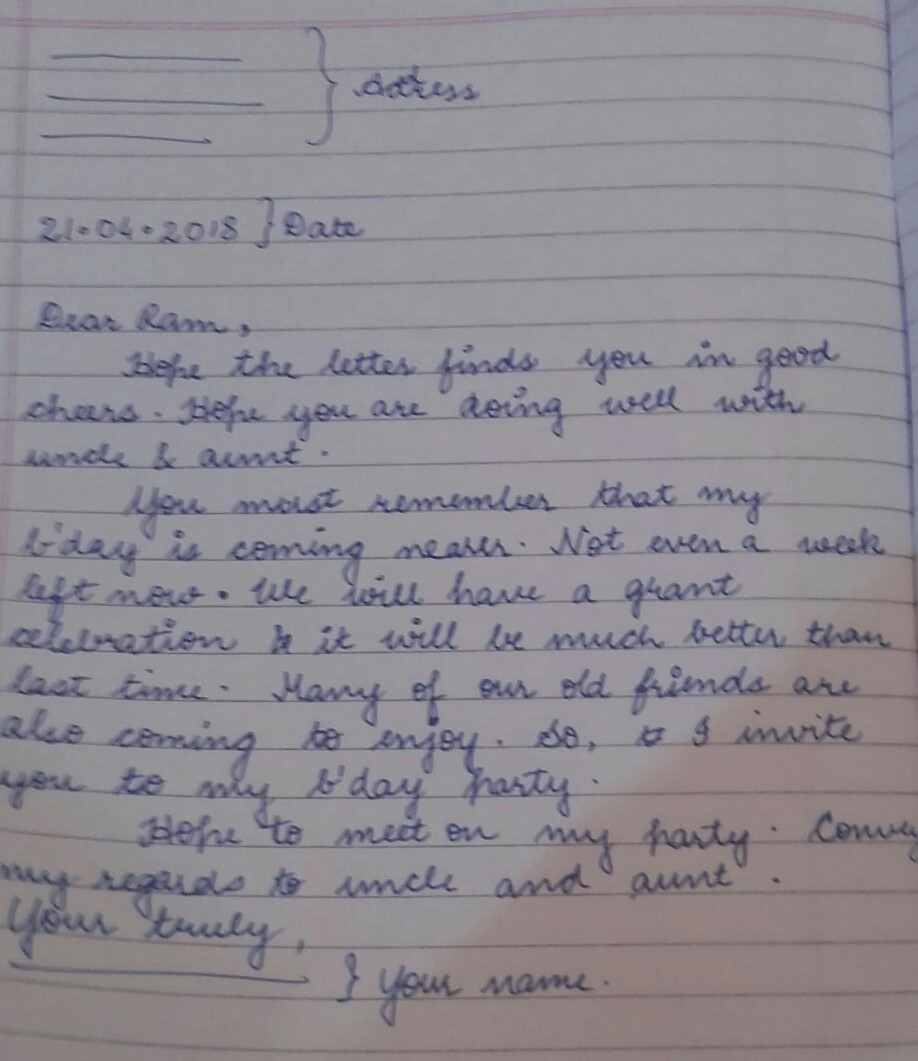 Address
21.04.2018 } Date
Dear Ram,
Hope the letter finds you in good
cheers. Hope you are doing well with
uncle & aunt.
You must remember that my
b'day is coming nearer. Not even a week
left now. We will have a grant
celebration & it will be much better than
last time. Many of our old friends are
also coming to enjoy. So, I invite
you to my b'day party.
Hope to meet on my party. Convey
my regards to uncle and aunt.
Your truely,
} Your name.